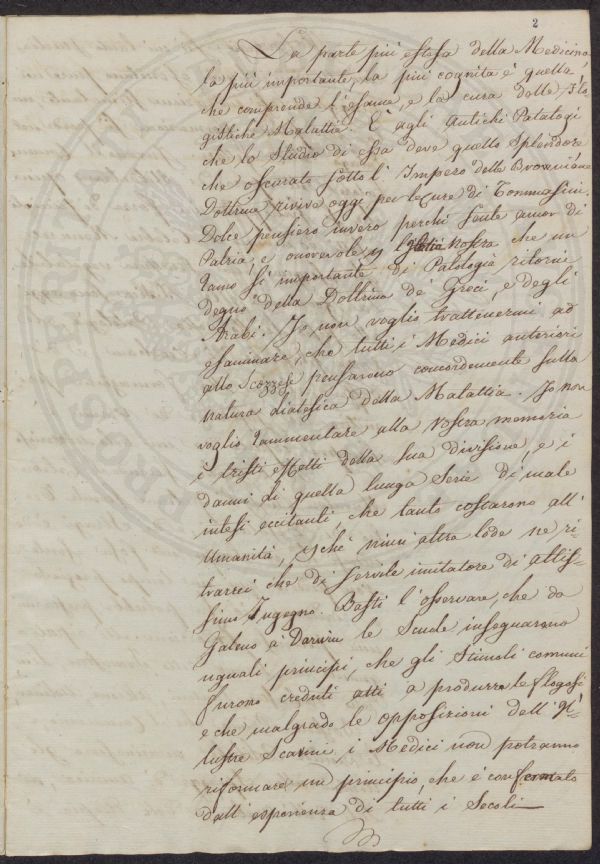 2
La parte più estesa della Medicina
la più importante, la più cognita è quella,
che comprende l'esame, e la cura delle Flo,
gistiche Malattie. È agli Antichi Patalogi
che lo Studio di essa deve quello Splendore
che oscurato sotto l'Impero della Browniana
Dottrina rivive oggi per le cure di Tommasini.
Dolce pensiero invero perchè sente amor di
Patria, e onorevole l'Italia Nostra che un
Ramo sì importante di Patologia ritorni
degno della Dottrina de' Greci, e degli
Arabi. Io non voglio trattenermi ad
esaminare, che tutti i Medici anteriori
allo Scozzese pensarono concordemente sulla
natura diatesica della Malattia. Io non
voglio rammentare alla Vostra memoria
i tristi effetti della sua divisione, e i
danni di quella lunga Serie di male
intesi eccitanti, che tanto costarono all'
Umanità, niun altra lode ne ri=
trarrei che di servile imitatore di altis=
simo Ingegno. Basti l'osservare, che da
Galeno a Darwin le Scuole insegnarono
uguali principj, che gli Stimoli comuni
furono creduti atti a produrre le flogosi
e che malgrado le opposizioni dell'Il=
lustre Scavini i Medici non potranno
riformare un principio, che è confermato
dall'esperienza di tutti i Secoli